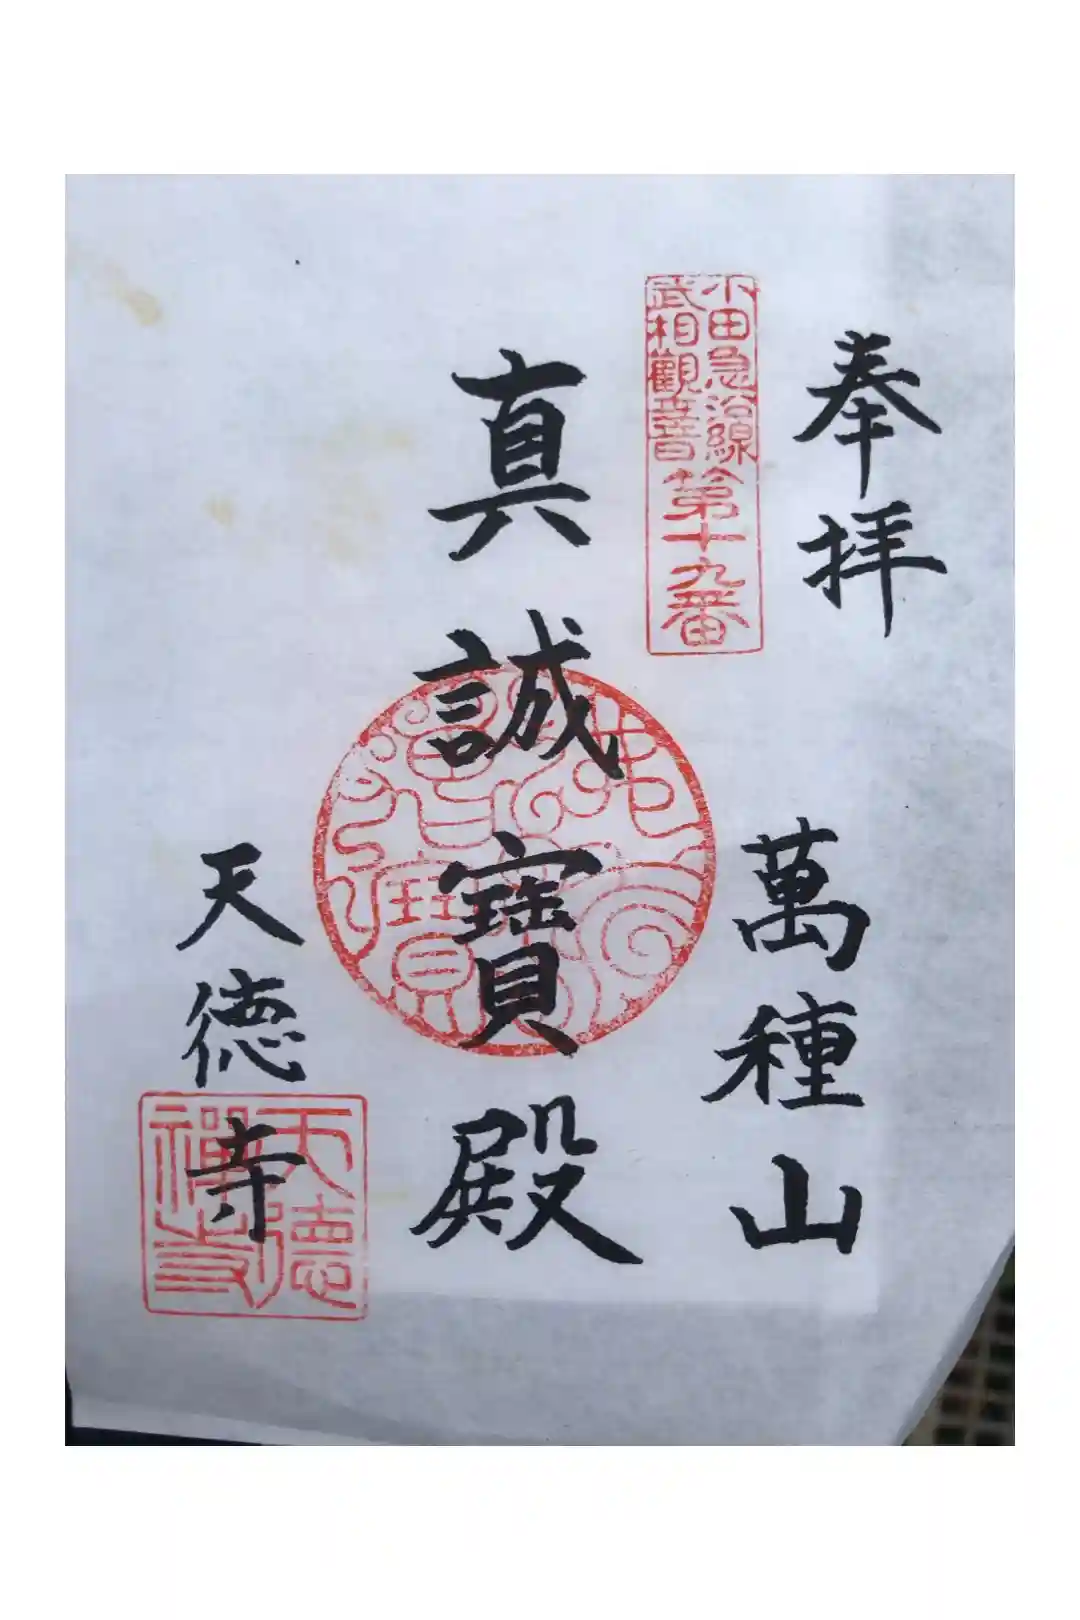 奉拝
萬種山
小田急沿線
武相觀音
第十九番
真誠寶殿
佛法僧寶
天徳寺
天德禅寺